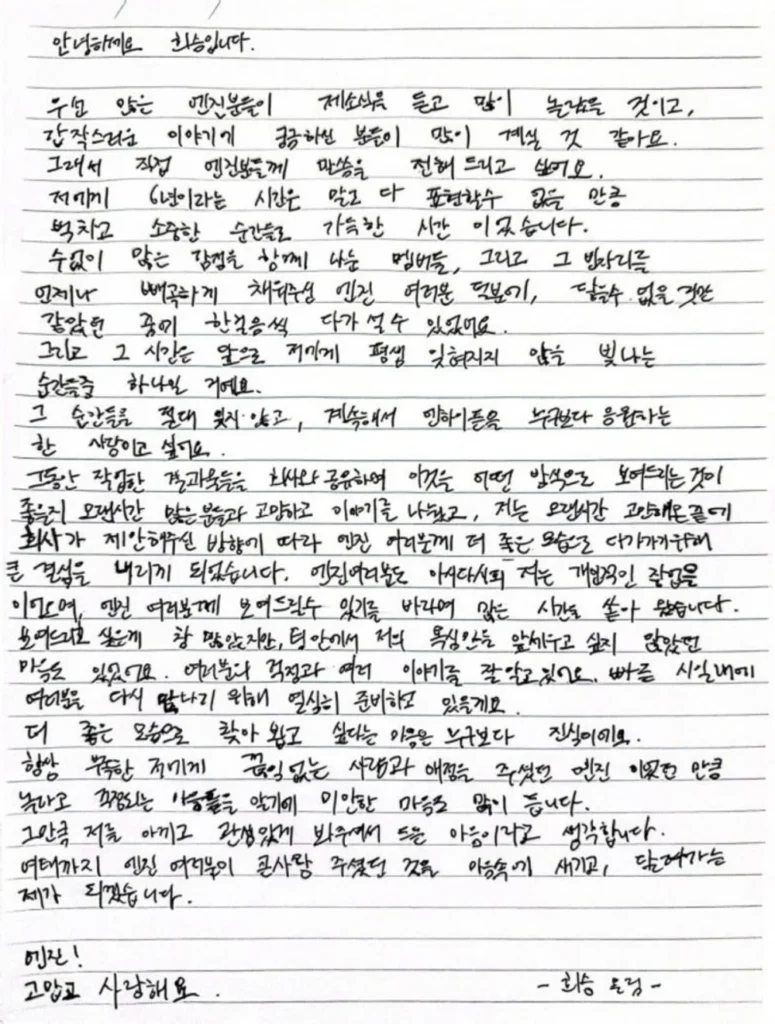 안녕하세요 희승입니다.
우선 많은 엔진분들이 제소식을 듣고 많이 놀랐을 것이고,
갑작스러운 이야기에 궁금하실 분들이 많이 계실 것 같아요.
그래서 직접 엔진분들께 말씀을 전해 드리고 싶어요.
저에게 6년이라는 시간은 말로 다 표현할수 없을 만큼
벅차고 소중한 순간들로 가득한 시간 이었습니다.
수없이 많은 감정을 함께 나눈 멤버들, 그리고 그 빈자리를
언제나 빼곡하게 채워주신 엔진 여러분 덕분에, 닿을수 없을 것만
같았던 꿈에 한걸음씩 다가 설 수 있었어요.
그리고 그 시간은 앞으로 저에게 평생 잊혀지지 않을 빛나는
순간들중 하나일 거예요.
그 순간들을 절대 잊지 않고, 계속해서 엔하이픈을 누구보다 응원하는
한 사람이고 싶어요.
그동안 작업한 결과물들을 회사와 공유하며 이것을 어떤 방식으로 보여드리는 것이
좋을지 오랜시간 많은 분들과 고민하고 이야기를 나눴고, 저는 오랜시간 고민해온 끝에
회사가 제안해주신 방향에 따라 엔진 여러분께 더 좋은 모습으로 다가가기위해
큰 결심을 내리게 되었습니다. 엔진여러분도 아시다시피 저는 개인적인 작업을
이어오며, 엔진 여러분께 보여드릴수 있기를 바라며 많은 시간을 쏟아 왔습니다.
보여드리고 싶은게 참 많았지만, 팀 안에서 저의 욕심만을 앞세우고 싶지 않았던
마음도 있었어요. 여러분의 걱정과 여러 이야기를 잘 알고 있어요. 빠른 시일내에
여러분을 다시 만나기 위해 열심히 준비하고 있을게요.
더 좋은 모습으로 찾아 뵙고 싶다는 마음은 누구보다 진심이에요.
항상 부족한 저에게 끊임 없는 사랑과 애정을 주셨던 엔진 이었던 만큼
놀라고 걱정되는 마음들을 알기에 미안한 마음도 많이 듭니다.
그만큼 저를 아끼고 관심있게 봐주셔서 드는 마음이라고 생각합니다.
여태까지 엔진 여러분이 큰사랑 주셨던 것을 마음속에 새기고, 달려가는
제가 되겠습니다.
엔진!
고맙고 사랑해요.
- 희승 드림 -